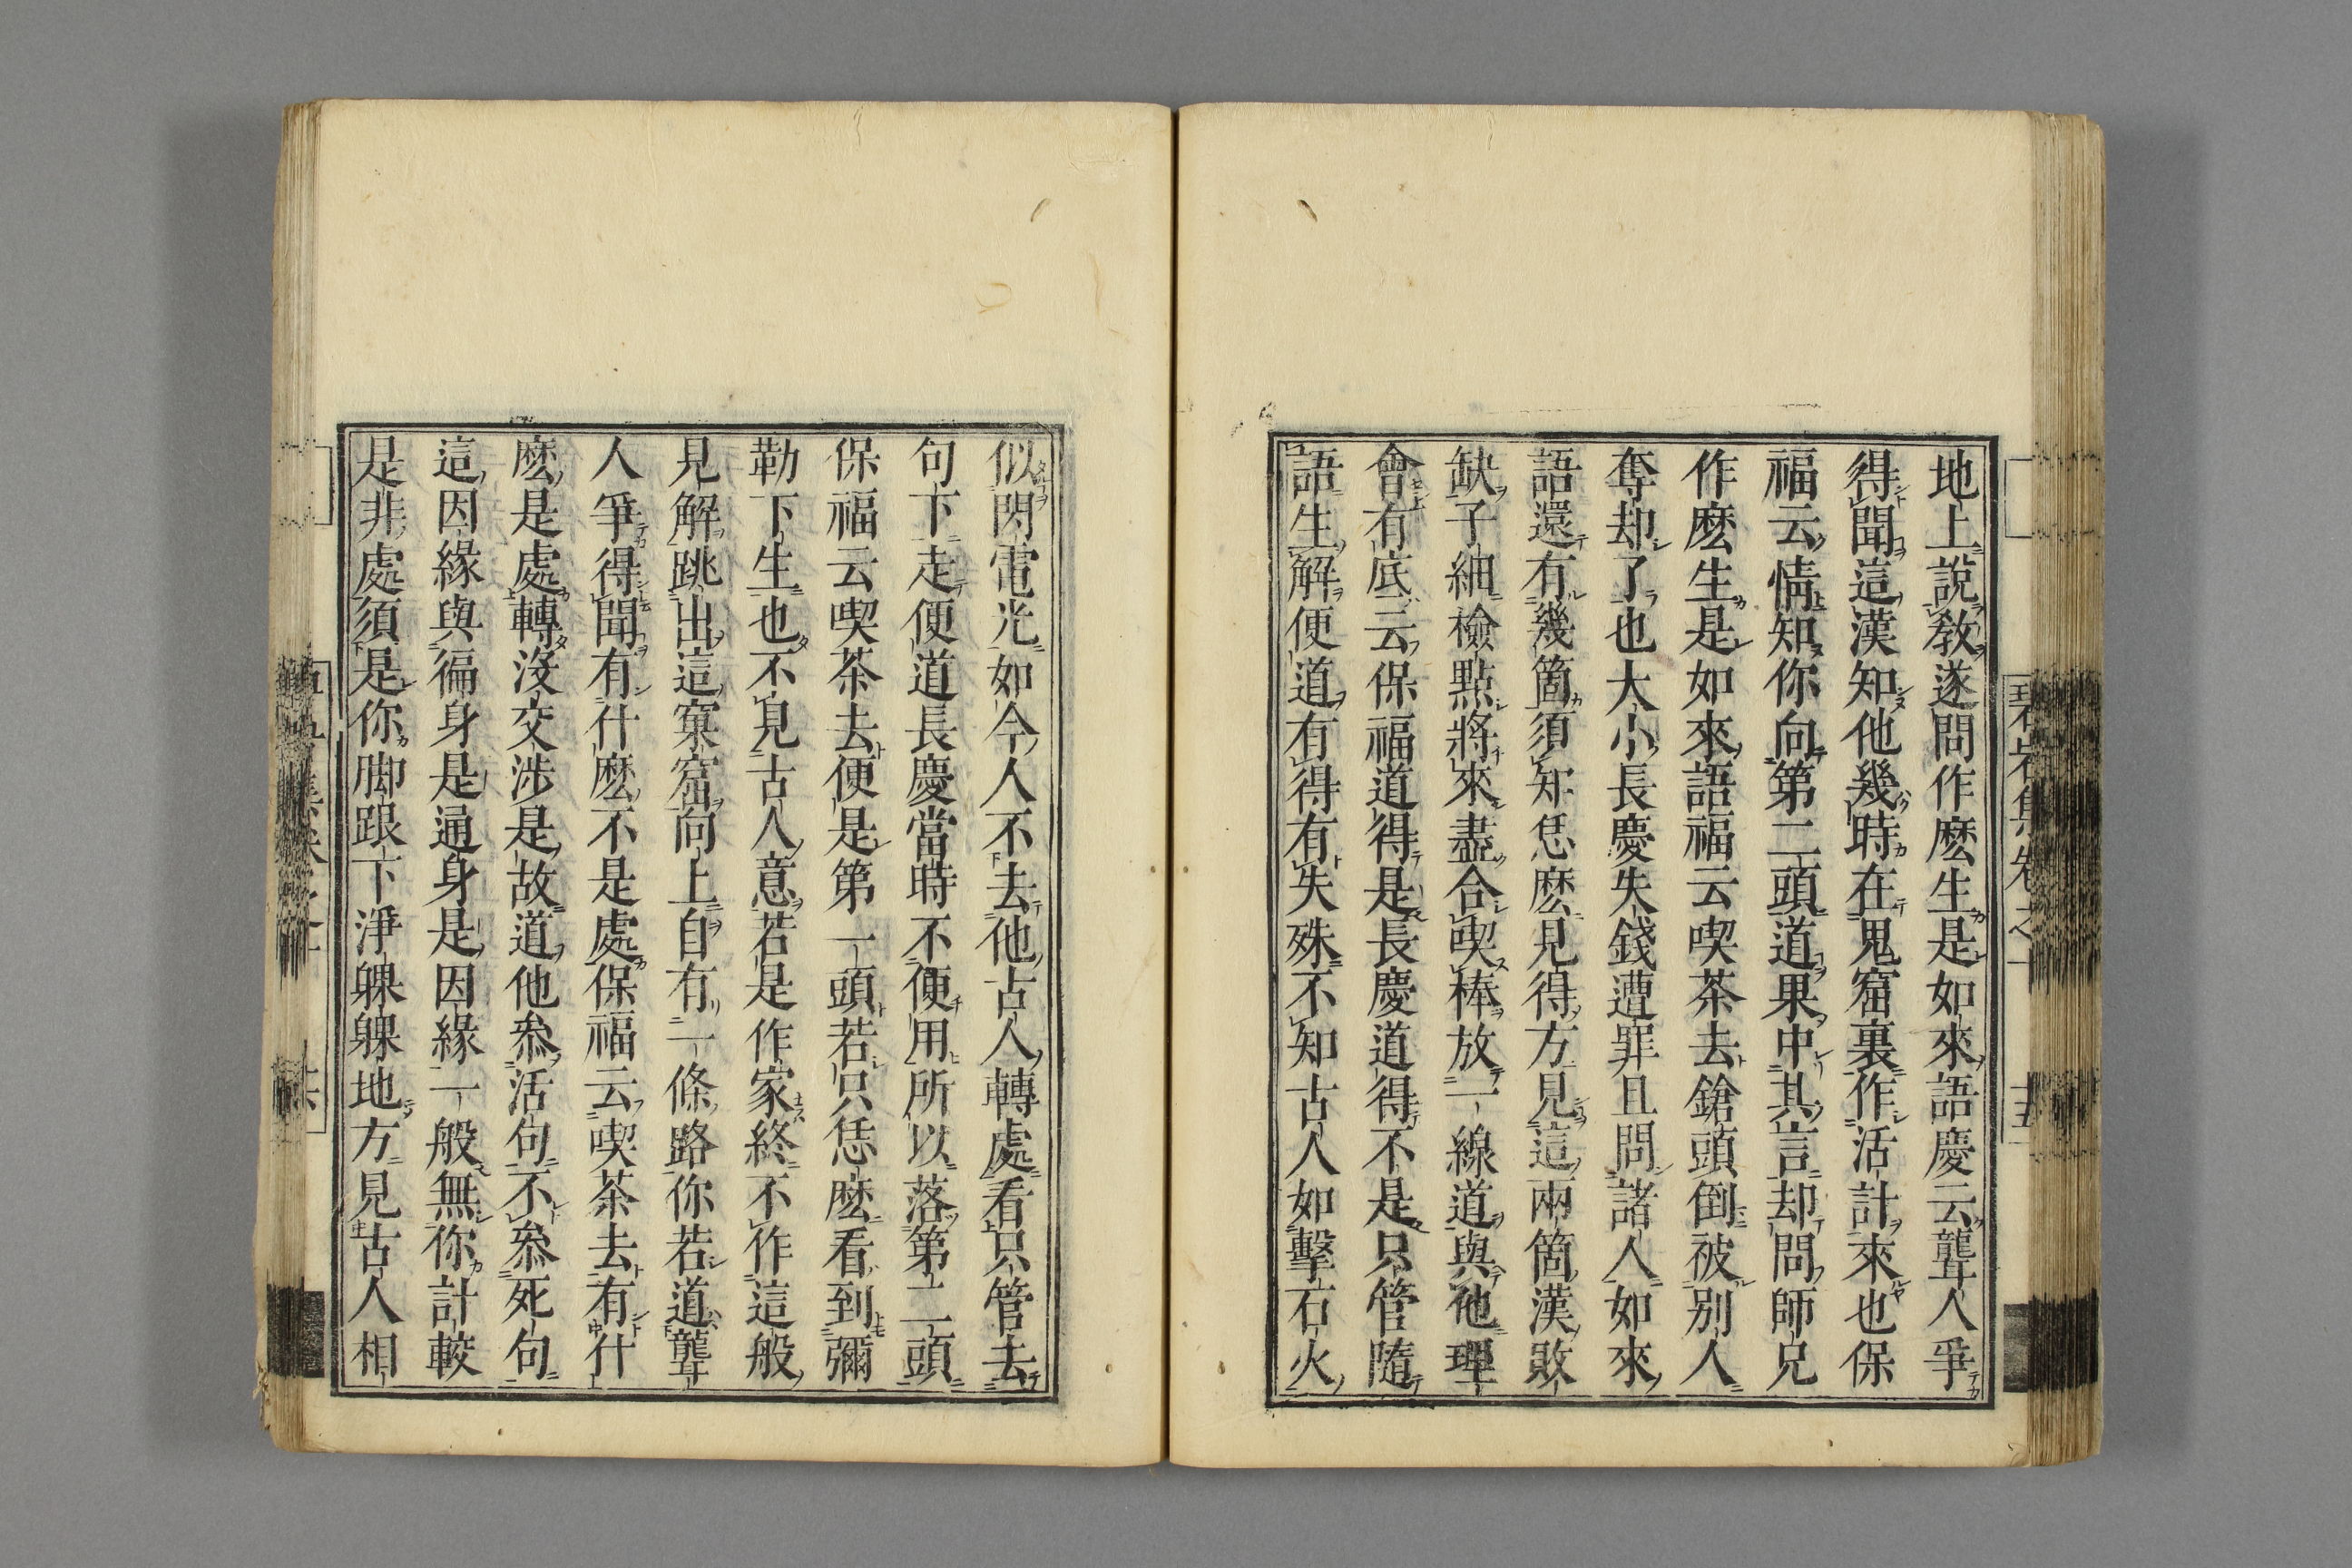 地上說敎遂問作麽生是如來語慶云聾人爭
得聞這漢知他幾時在鬼窟裏作活計來也保
福云情知你向第二頭道果中其言却問師兄
作麽生是如來語福云喫茶去鎗頭倒被別人
奪却了也大小長慶失錢遭罪且問諸人如來
語還有幾箇須知恁麽見得方見這兩箇漢敗
缺子細檢點將來盡合喫棒放一線道與他理
會有底云保福道得是長慶道得不是只管隨
語生解便道有得有失殊不知古人如擊石火
碧岩集卷之十
十五
似閃電光如今人不去他古人轉處看只管去
句下走便道長慶當時不便用所以落第二頭
保福云喫茶去便是第一頭若只恁麽看到彌
勒下生也不見古人意若是作家終不作這般
見解跳出這窠窟向上自有一條路你若道聾
人爭得聞有什麽不是處保福云喫茶去有什
麽是處轉沒交涉是故道他叅活句不叅死句
這因緣與徧身是通身是因緣一般無你計較
是非處須是你脚跟下淨躶躶地方見古人相